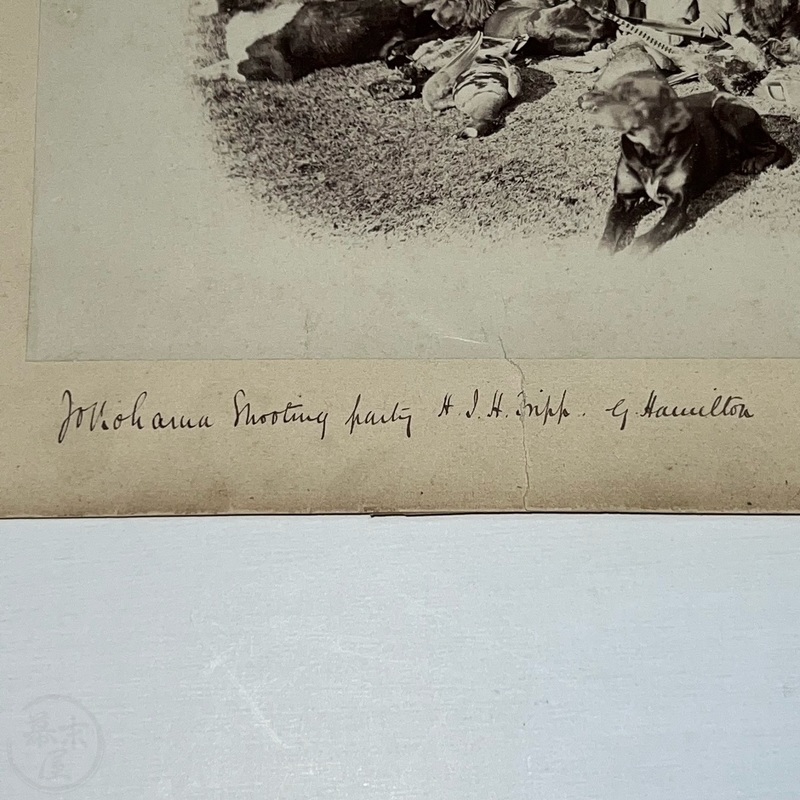 Yokohama Shooting party H.J.H. Tripp. G. Hamilton
幕末屋